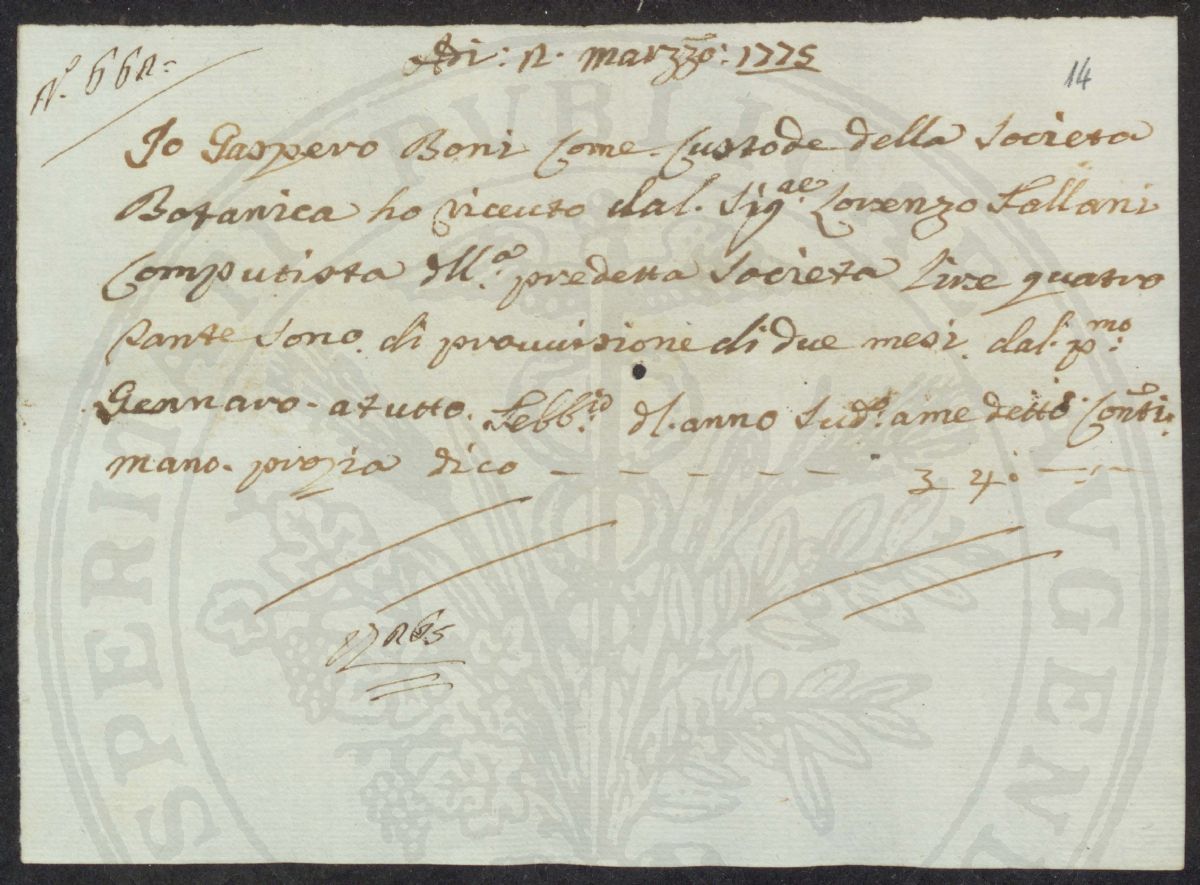 N.º 662=
Adi: 2. marzzo: 1775
14
Io Gaspero Boni Come Custode della Societa
Botanica ho riceuto dal. Sig.re Lorenzo Fallani
Computista dll.a predetta Societa Lire quatro
tante sono di prouuisione di due mesi dal. p.mo
Gennaro a tutto. Febb.io dl. anno Sud.o ame detto Conti
mano propia dico — — — — — — 3 4: — : —
265
PUBLICAE
SPERITATI
AUGEND